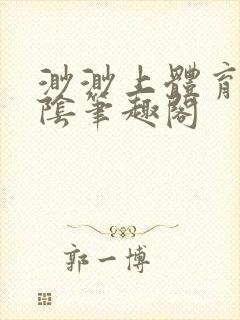 渺渺上體育
陰筆趣閣
郭一博